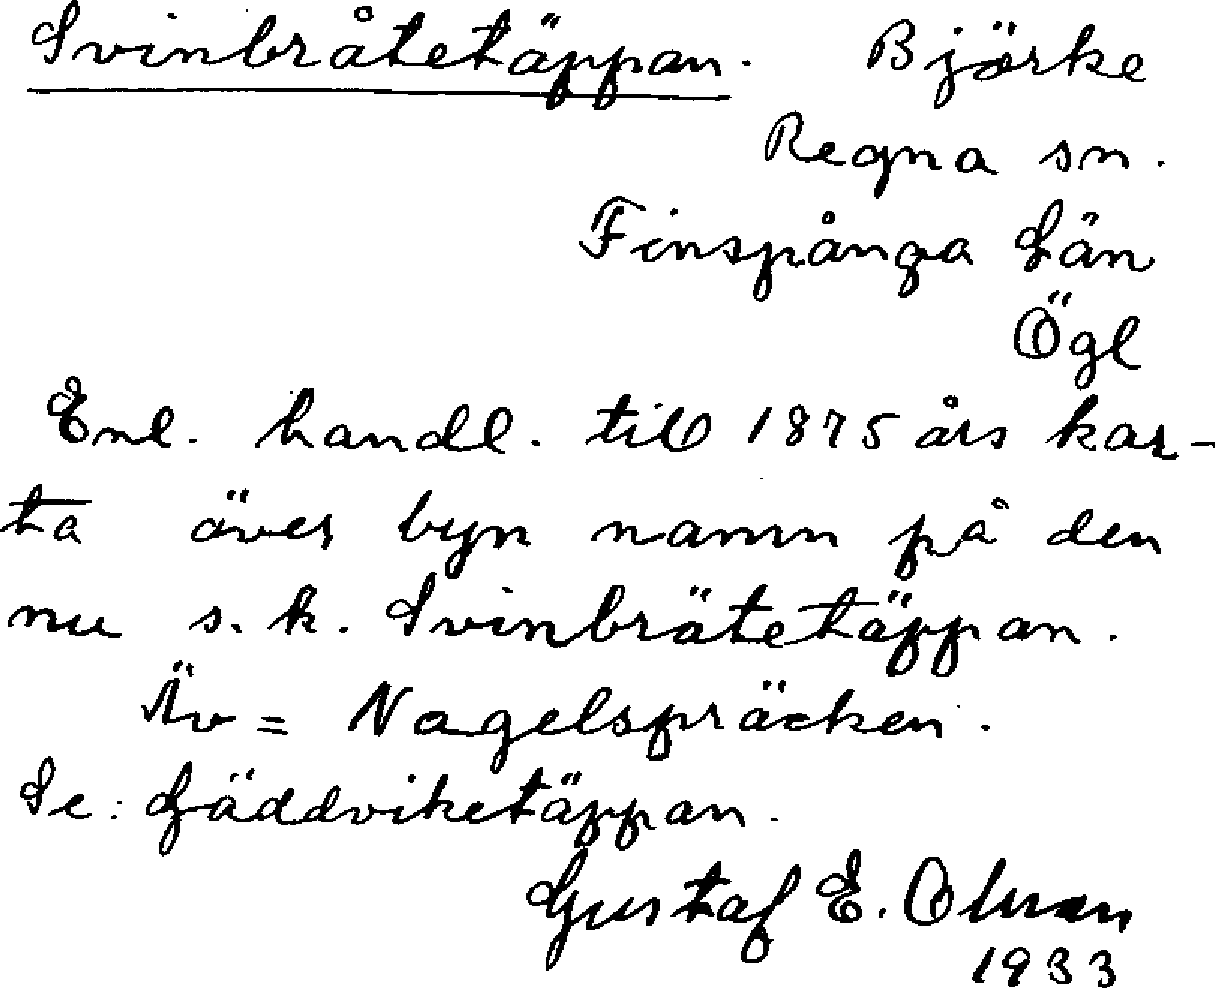 Svinbråtetäppan. Björke
Regna sn.
Finspånga Län
Ögl
Enl. handl. till 1875 års kar-
ta över byn namn på den
nu s.k. Svinbrätetäppan.
Äv = Nagelspräcken.
Se: Gäddviketäppan.
Gustaf E. Olman
1933